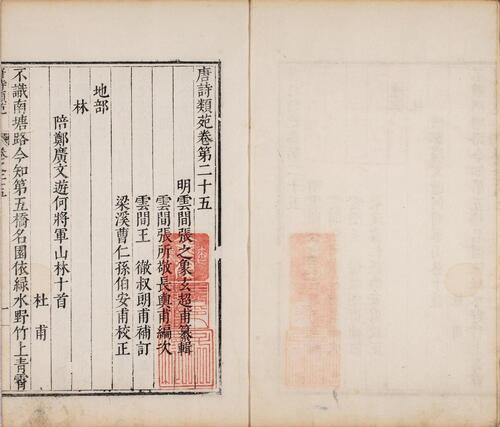 唐詩類苑卷第二十五
明雲間張之象玄超甫纂輯
雲間張所敬長輿甫編次
雲間王徹叔朗甫補訂
梁溪曹仁孫伯安甫校正
地部
林
陪鄭廣文遊何將軍山林十首
杜甫
不識南塘路今知第五橋名園依綠水野竹上青霄